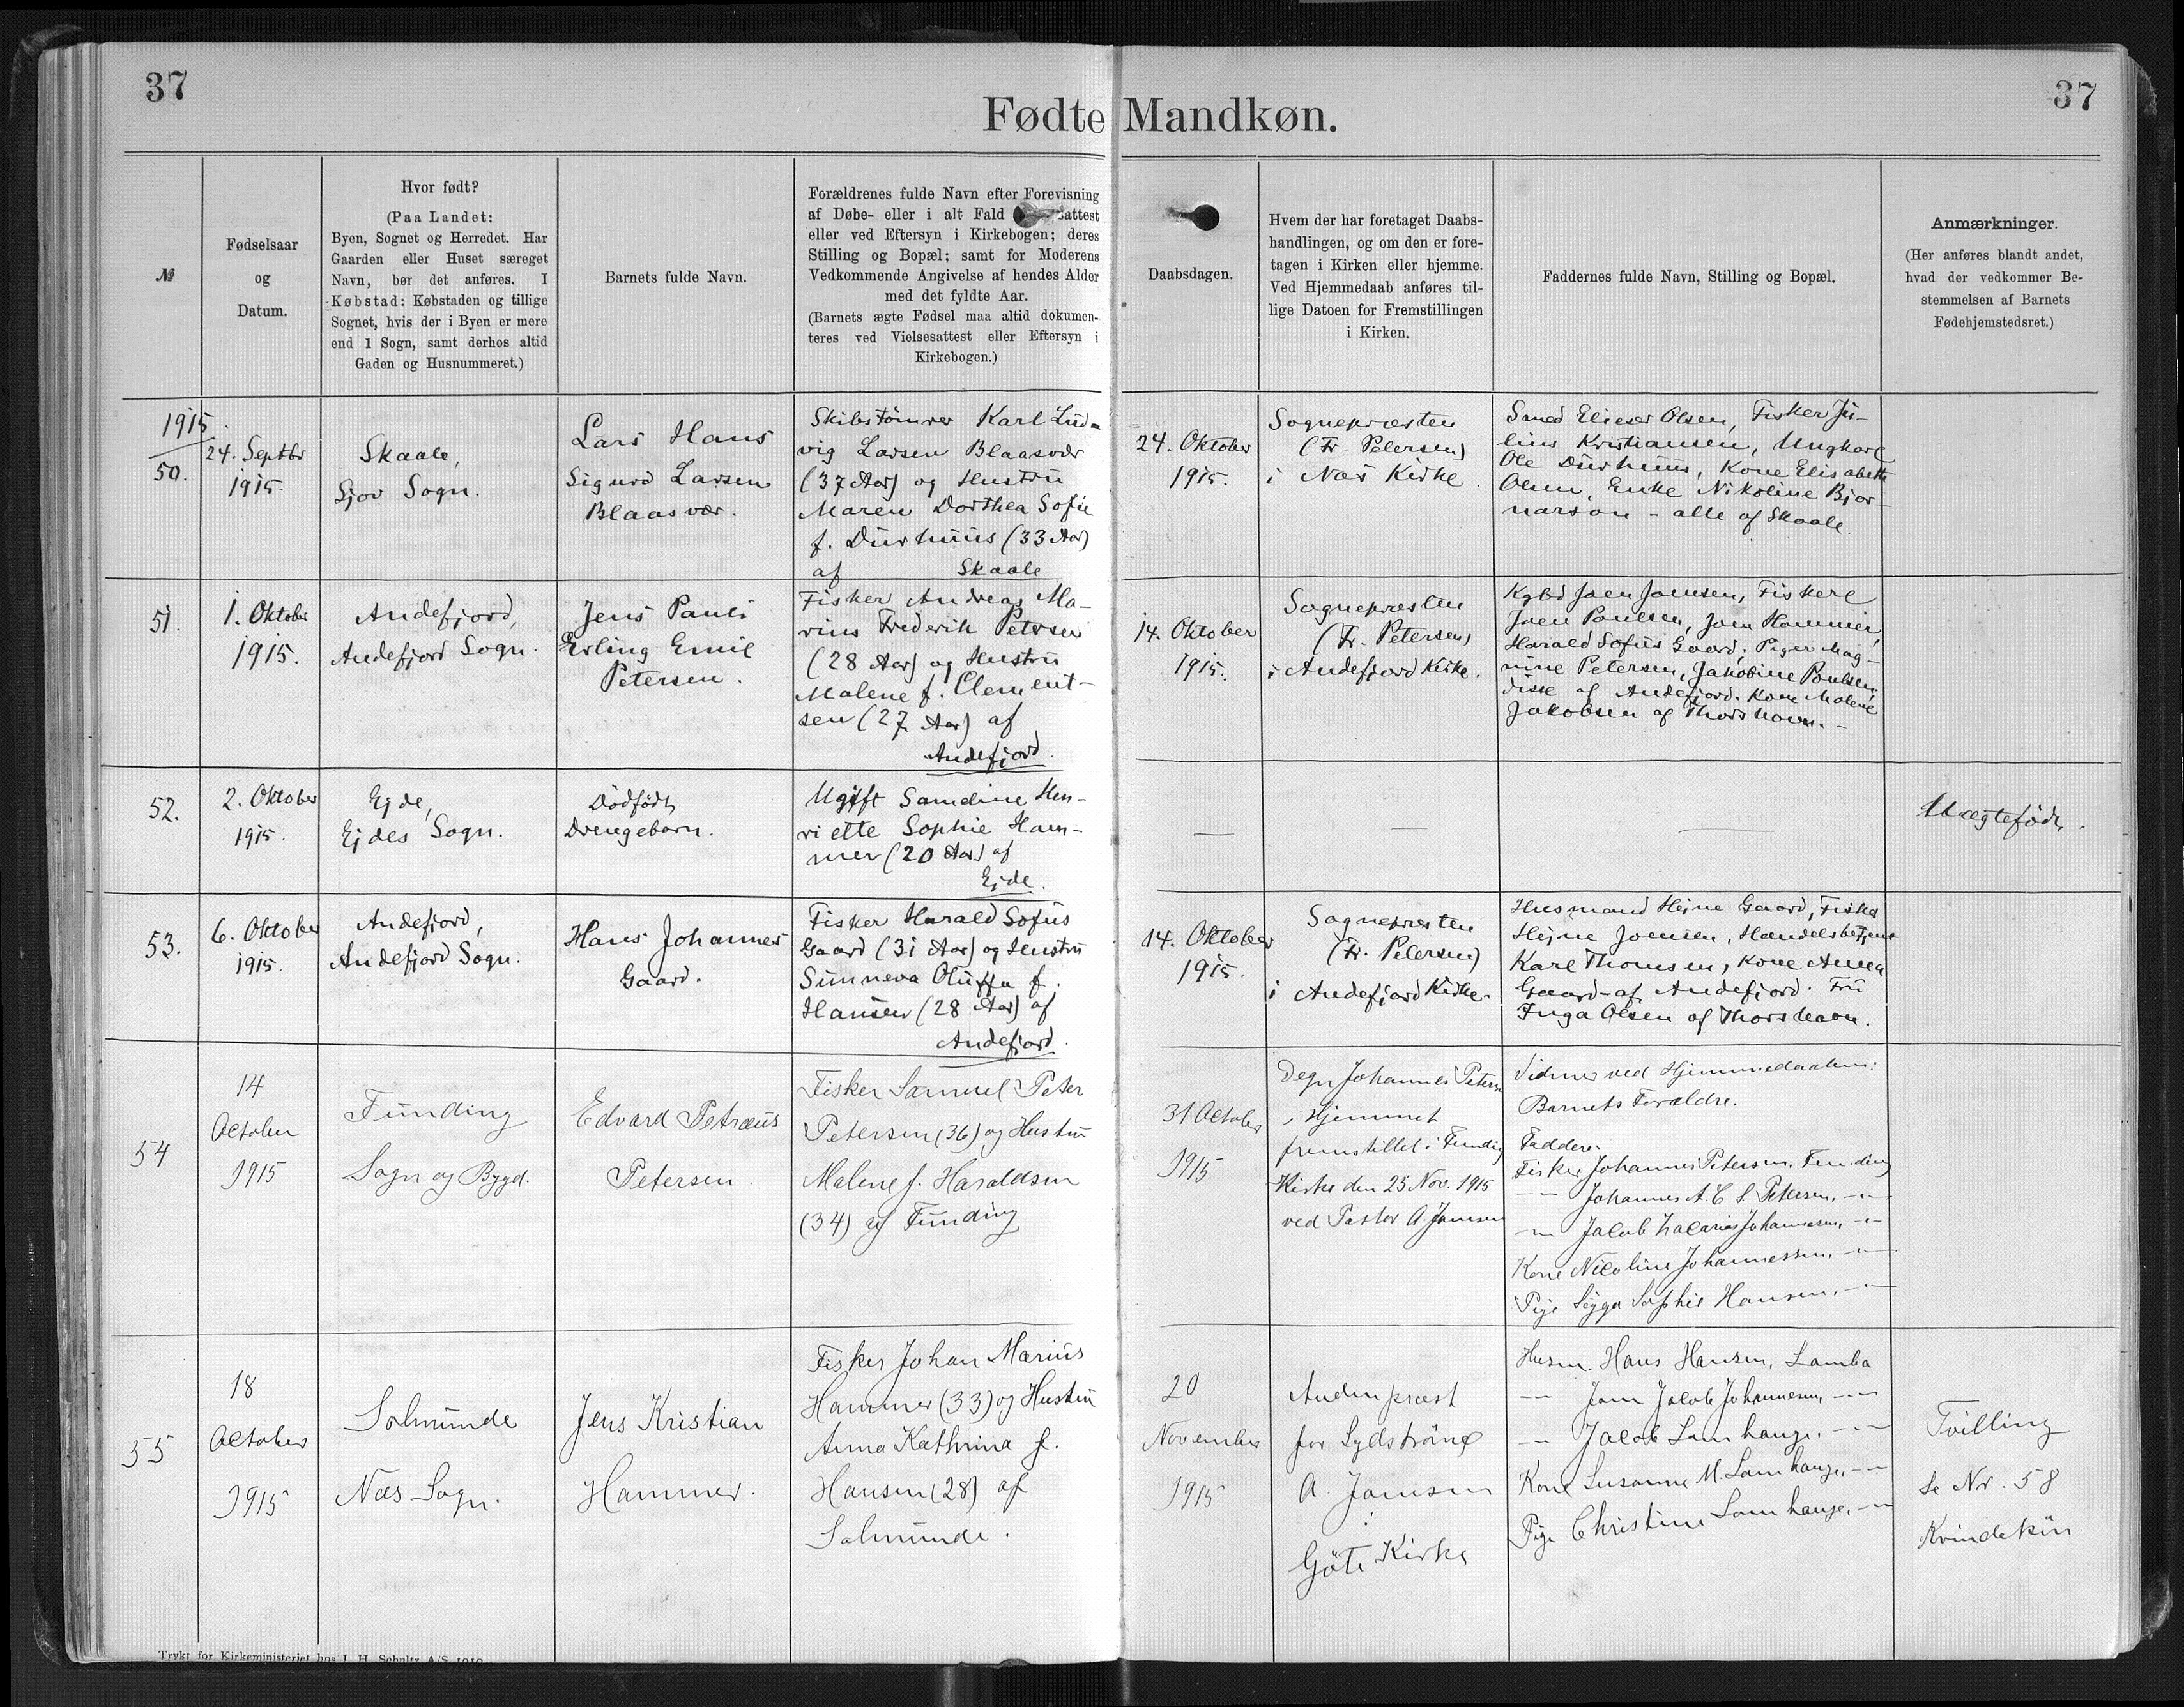 37
37
Fødte Mandkøn.
№
Fødselsaar
og
Datum.
Hvor født?
(Paa Landet:
Byen, Sognet og Herredet. Har
Gaarden eller Huset særeget
Navn, bør det anføres. I
Købstad: Købstaden og tillige
Sognet, hvis der i Byen er mere
end 1 Sogn, samt derhos altid
Gaden og Husnummeret.)
Barnets fulde Navn.
Forældrenes fulde Navn efter Forevisning
af Døbe- eller i alt Fald attest
eller ved Eftersyn i Kirkebogen; deres
Stilling og Bopæl; samt for Moderens
Vedkommende Angivelse af hendes Alder
med det fyldte Aar.
(Barnets ægte Fødsel maa altid dokumen-
teres ved Vielsesattest eller Eftersyn i
Kirkebogen.)
Daabsdagen.
Hvem der har foretaget Daabs-
handlingen, og om den er fore-
tagen i Kirken eller hjemme.
Ved Hjemmedaab anføres til-
lige Datoen for Fremstillingen
i Kirken.
Faddernes fulde Navn, Stilling og Bopæl.
Anmærkninger.
(Her anføres blandt andet,
hvad der vedkommer Be-
stemmelsen af Barnets
Fødehjemstedsret.)
1915.
50.
24. Septbr
1915.
Skaale,
Sjov Sogn.
Lars Hans
Sigurd Larsen
Blaasvær.
Skibstømrer Karl Lud-
vig Larsen Blaasvær
(37 Aar) og Hustru
Maren Dorthea Sofie
f. Durhuus (33 Aar)
af Skaale
24. Oktober
1915.
Sognepræsten
(Fr. Petersen)
i Næs Kirke.
Smed Elieser Olsen, Fisker Ju-
lius Kristiansen, Ungkarl
Ole Durhuus, Kone Elisabeth
Olsen, Enke Nikoline Bjar-
narson - alle af Skaale.
51.
1. Oktober
1915.
Andefjord,
Andefjord Sogn.
Jens Pauli
Erling Emil
Petersen.
Fisker Andreas Ma-
rius Frederik Petersen
(28 Aar) og Hustru
Malene f. Clement-
sen (27 Aar) af
Andefjord.
14. Oktober
1915.
Sognepræsten
(Fr. Petersen)
i Andefjord Kirke.
Kgbd Joen Joensen, Fiskere
Joen Poulsen, Joen Hammer,
Harald Sofus Gaard, Piger Mag-
nine Petersen, Jakobine Poulsen,
disse af Andefjord. Kone Malene
Jakobsen af Thorshavn. -
52.
2. Oktober
1915.
Ejde,
Ejdes Sogn.
Dødfødt
Drengebarn.
Ugift Samdine Hen-
riette Sophie Ham-
mer (20 Aar) af
Ejde.
—
—
—
Uægtefødt.
53.
6. Oktober
1915.
Andefjord,
Andefjord Sogn.
Hans Johannes
Gaard.
Fisker Harald Sofus
Gaard (31 Aar) og Hustru
Sunneva Oluffa f.
Hansen (28 Aar) af
Andefjord.
14. Oktober
1915.
Sognepræsten
(Fr. Petersen)
i Andefjord Kirke.
Husmand Hejne Gaard, Fisker
Hejne Joensen, Handelsbetjent
Karl Thomsen, Kone Anna
Gaard - af Andefjord. Fru
Inga Olsen af Thorshavn.
54
14
October
1915
Funding
Sogn og Bygd.
Edvard Petræus
Petersen.
Fisker Samuel Peter
Petersen (36) og Hustru
Malene f. Haraldsen
(34) af Funding
31 October
1915
Degn Johannes Petersen
i Hjemmet
fremstillet i Funding
Kirke den 25 Nov. 1915
ved Pastor A. Joensen
Vidner ved Hjemmedaaben:
Barnets Forældre.
Faddere.
Fisker Johannes Petersen, Funding
-"- Johannes A. C. S. Petersen, -"-
-"- Jacob Zacarias Johannesen, -"-
Kone Nicoline Johannessen, -"-
Pige Sigga Sophie Hansen, -"-
55
18
October
1915
Solmunde
Næs Sogn.
Jens Kristian
Hammer.
Fisker Johan Marius
Hammer (33) og Hustru
Anna Kathrina f.
Hansen (28) af
Solmunde.
20
November
1915
Andenpræst
for Sydstrømø
A. Joensen
i
Göte Kirke
Husm. Hans Hansen, Lamba
-"- Joen Jacob Johannesen, -"-
-"- Jacob Lamhauge, -"-
Kone Susanne M. Lamhauge, -"-
Pige Christine Lamhauge, -"-
Tvilling
se Nr. 58
Kvindekön
Trykt for Kirkeministeriet hos J. H. Schultz A/S 1910